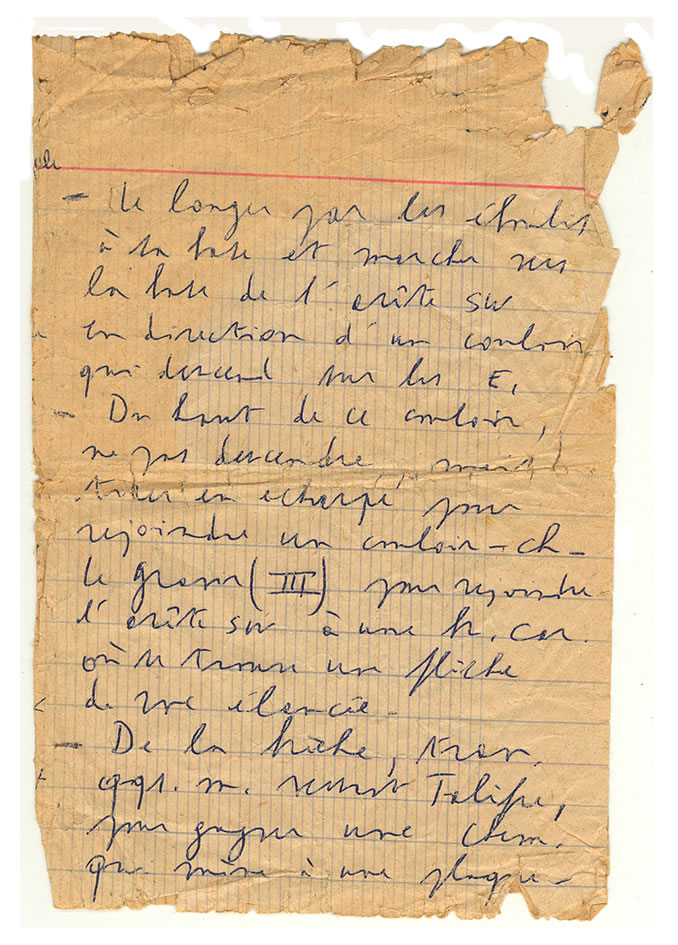 - Le longer par les éboulis
à sa base et marcher vers
la base de l'arête SW
en direction d'un couloir
qui descend sur les E.
- Du haut de ce couloir,
ne pas descendre, mais
tirer en écharpe pour
rejoindre un couloir-ch-
le gravir (III) pour rejoindre
l'arête SW à une br. car.
où se trouve un flèche
de roc élancée.
- De la brèche, trav.
qqs. m. versant
pour gagner une chem.
qui mène à une plaque-